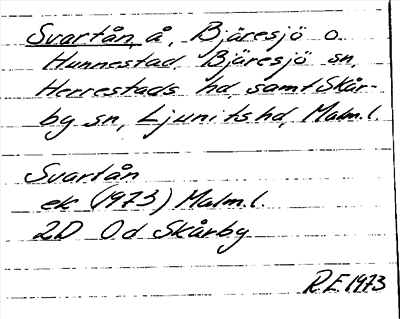 Svartån, å, Bjäresjö o.
Hunnestad, Bjäresjö sn,
Herrestads hd, samt Skår-
by sn, Ljunits hd, Malm.l.
Svartån
ek (1973) Malm.l.
2D 0d Skårby
R.E. 1973